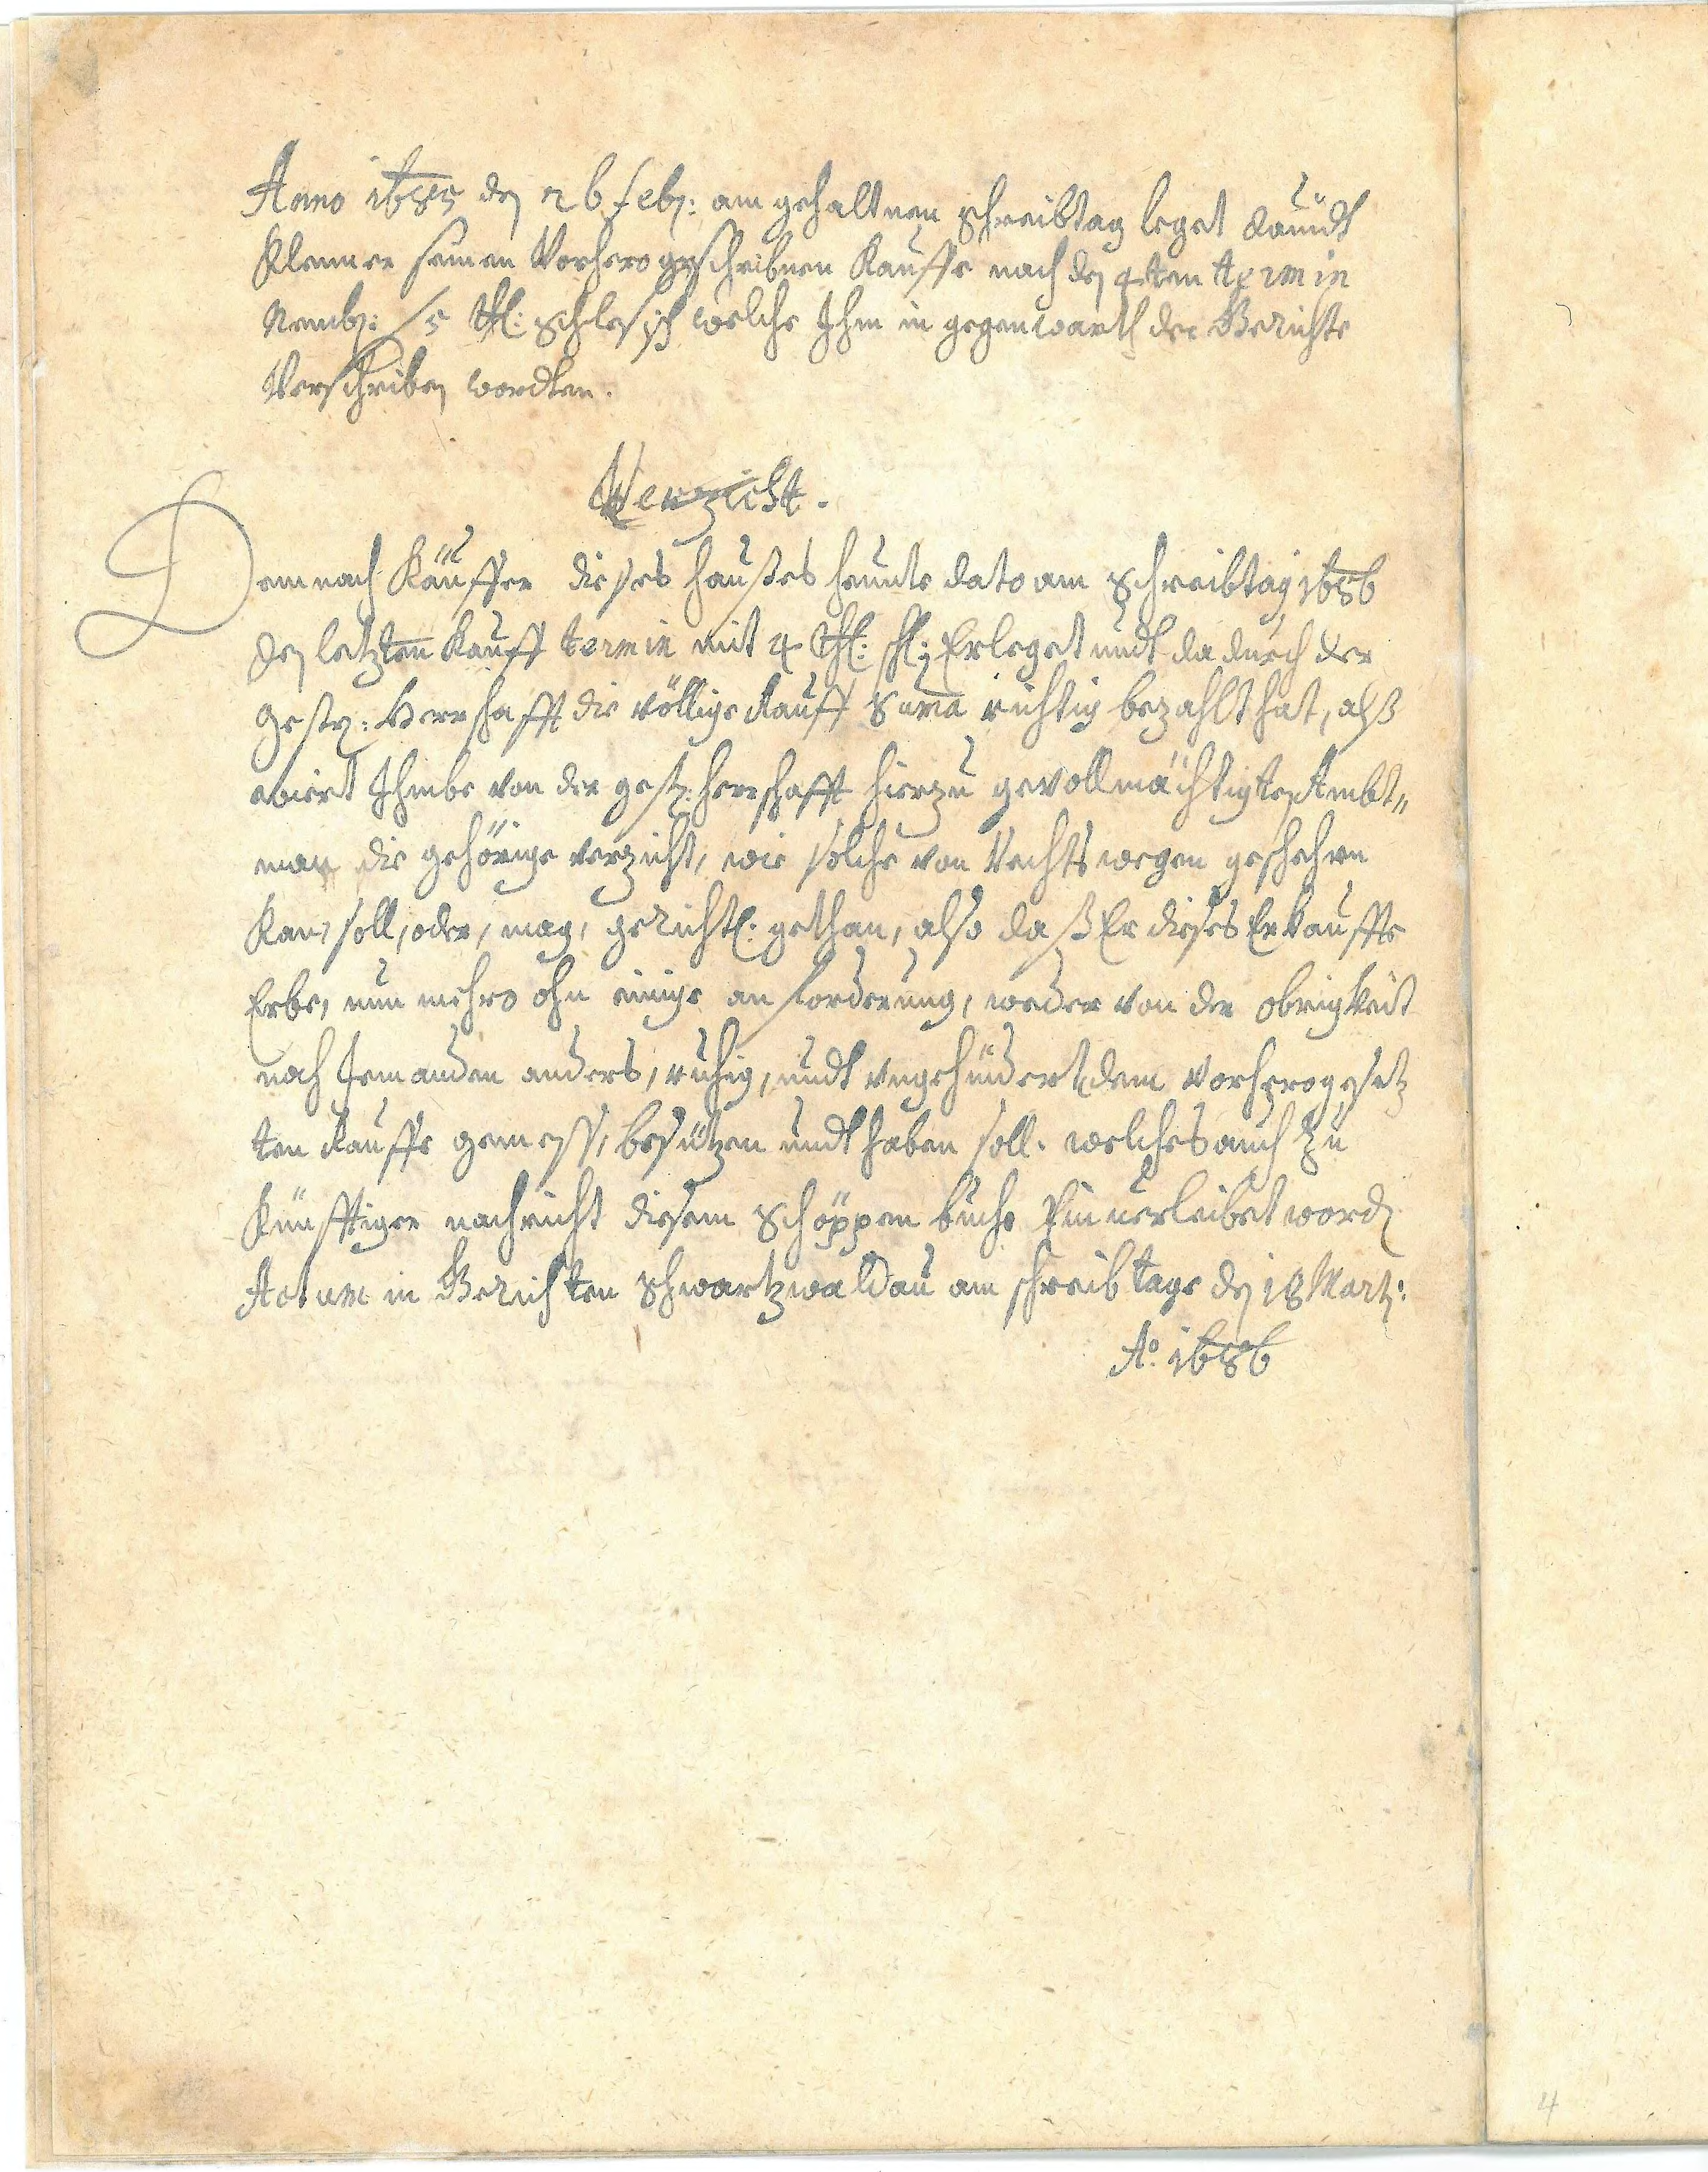 Anno 1685 den 26 Febr: am gehaltnen Schreibtag leget
Klenner seinen Vorhero geschribnen Kauffe nach den 4ten termin
Nembl: 5 thl: Schlesisch welche Ihm in gegenwarth der Gerichte
Verschriben wordten.
Verzicht.
Demnach Käuffer dieses haußes heunte dato am Schreibtag 1686
den letzten Kauff termin mit 4 thl: schl: Erleget undt dadurch der
Gestr: Herrschafft die völlige Kauff Suma richtig bezahlt hat, alß
wiert Ihme von der gestr: herrschafft hierzu gevollmächtigten Ambt„
man die gehörige verzicht, wie solche von Rechts wegen geschehen
Kan, soll, oder, mag, gerichtl: gethan, also daß Er dieses Erkauffte
Erbe, nun mehro ohn einige anforderung, weder von der obrigkeit
noch Jemanden anders, ruhig, undt ungehindert dem vorhero gesetz
ten Kauffe gemess, besitzen undt haben soll. welches auch zu
Künfftiger nachricht diesem Schöppenbuche Einverleibet word
Actum in Gerichten Schwartzwaldau am schreib tage den 18 Martz:
Ao. 1686
4